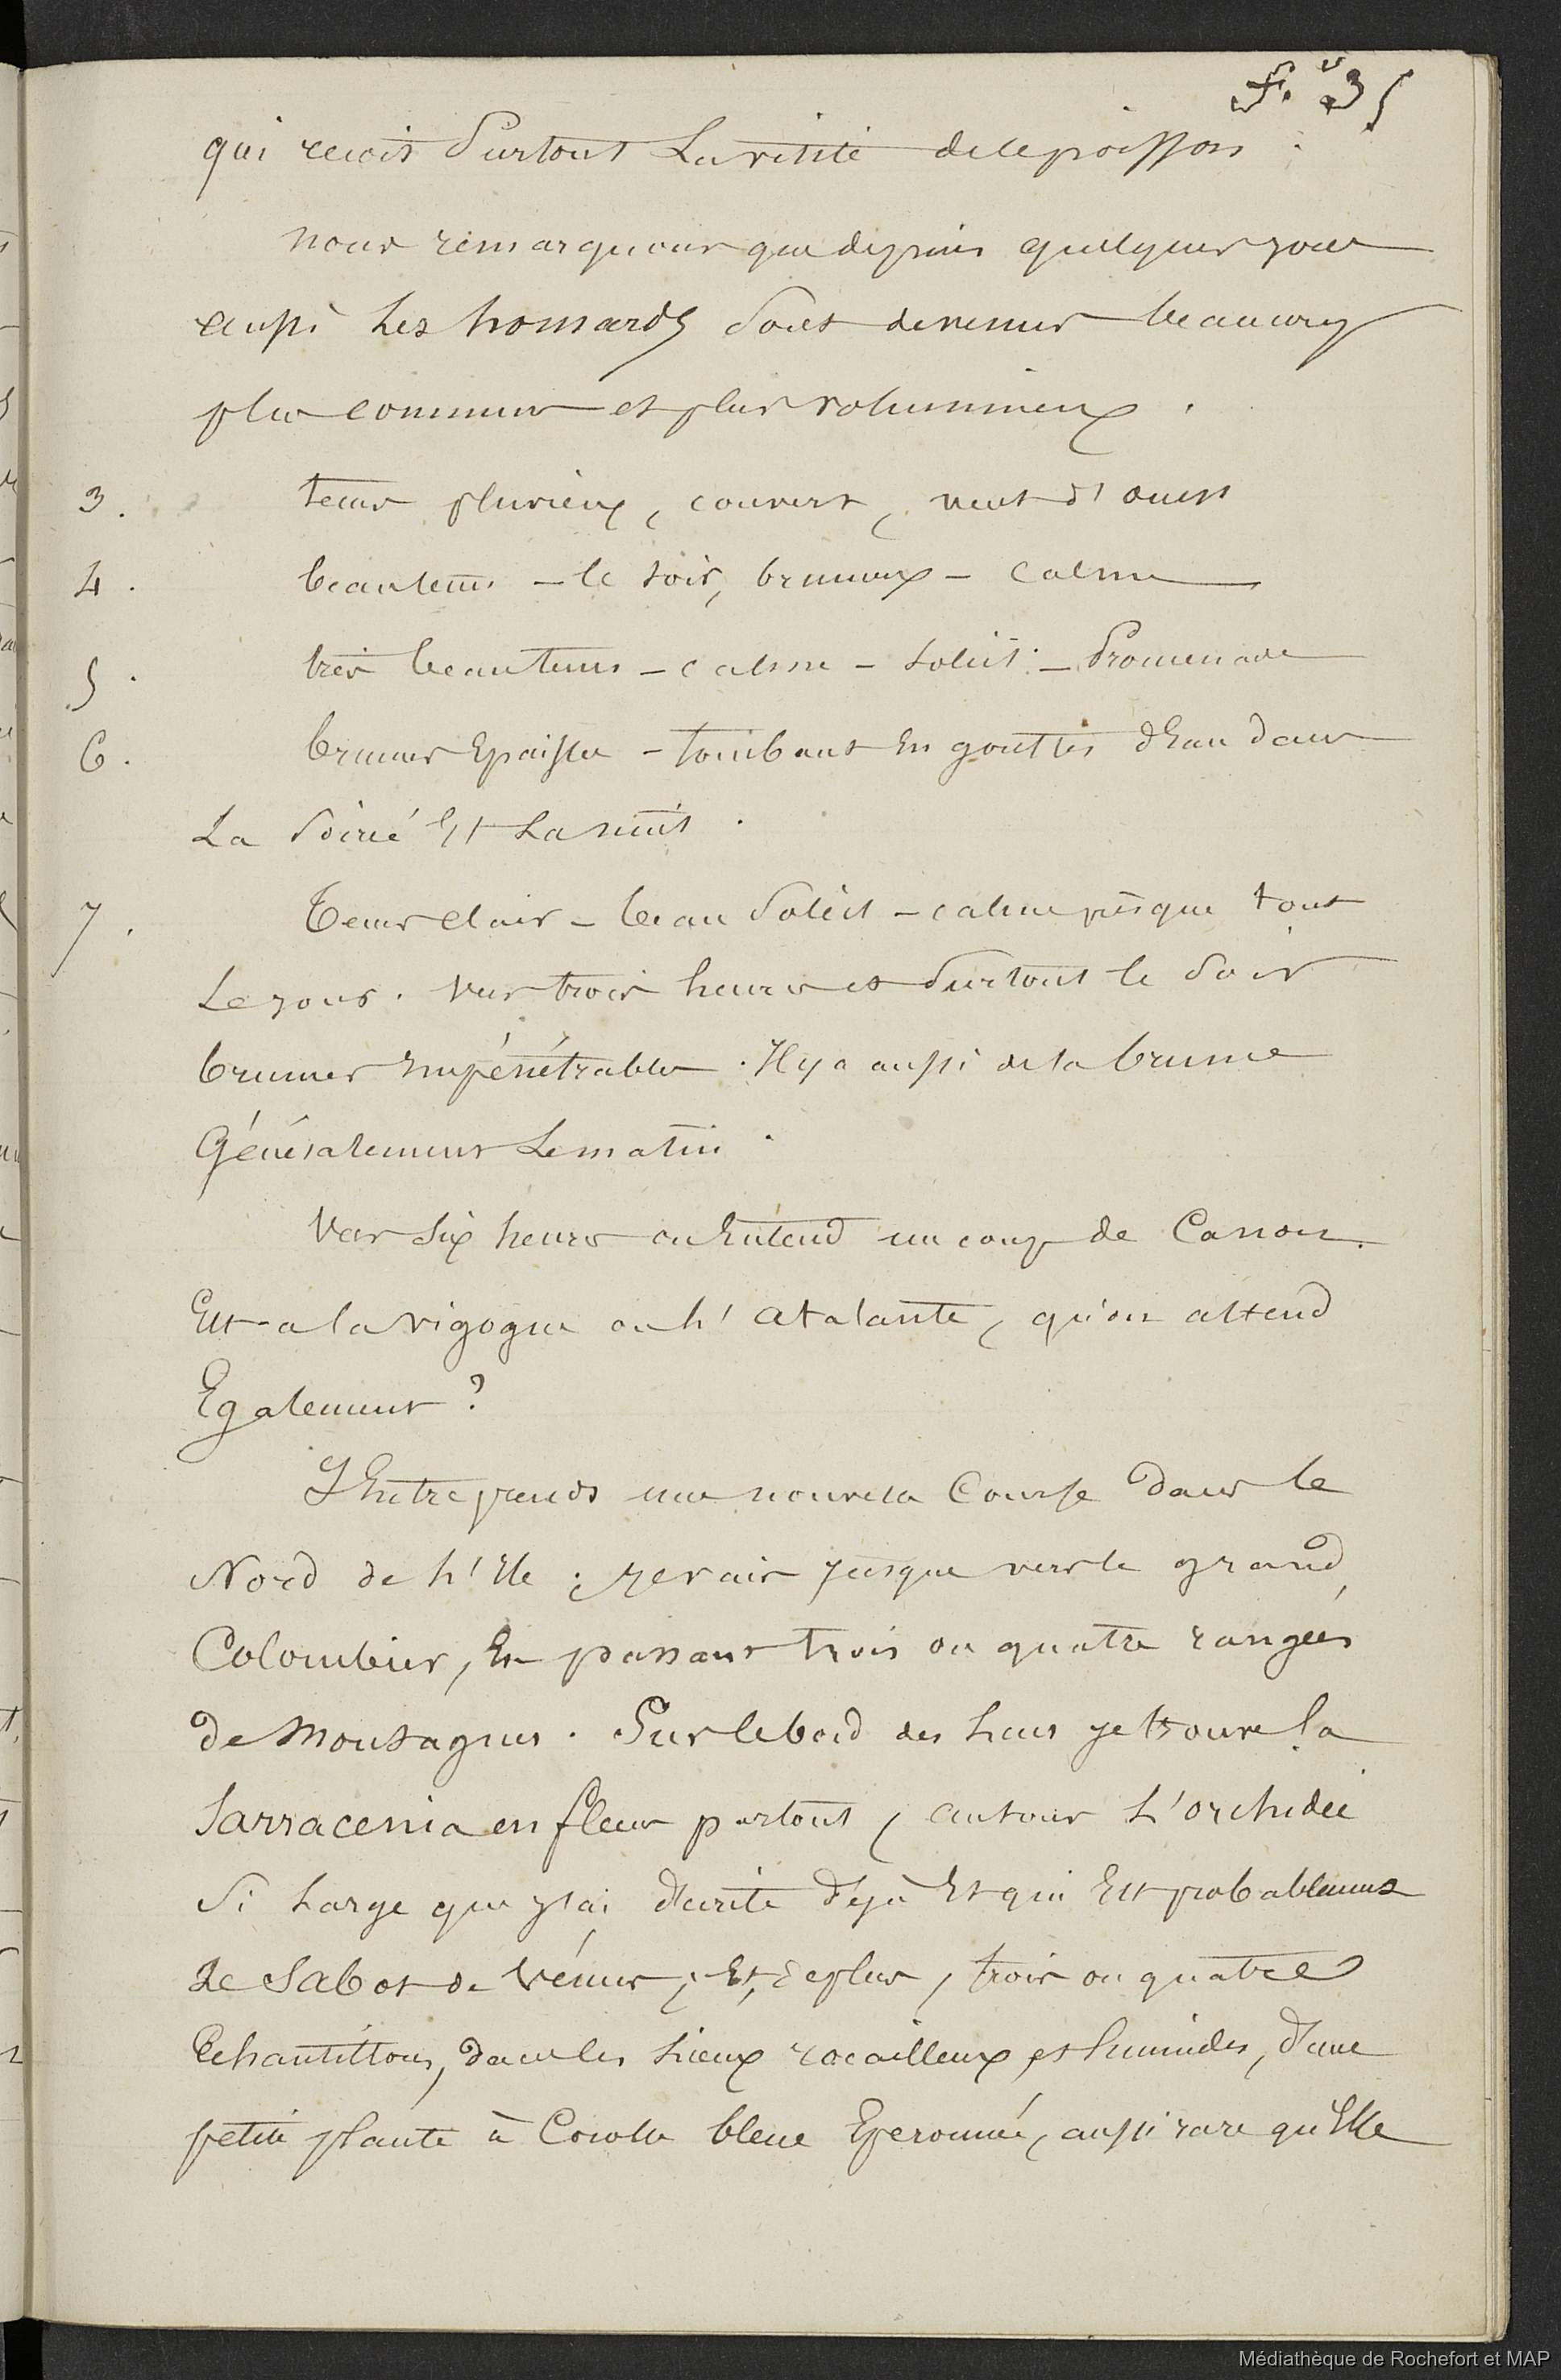 F. 35
qui recoit Surtout La visite de ce poisson.
nous remarquons que depuis quelques jours
aussi Les homards Sont devenus beaucoup
plus communs et plus volumineux.
3. tems pluvieux, couvert, vent d'ouest
4. beau tems - le soir, brumeux - calme
5. très beau tems - calme - soleil. - Promenade
6. brumes Epaisses - tombant En gouttes d'Eau dans
La Soirée Et La nuit.
7. tems clair - beau Soleil - calme presque tout
Le jour. vers trois heures et Surtout le Soir
brumes impénétrables. Il y a aussi de la brume
Généralement Le matin.
Vers Six heures on Entend un coup de Canon.
Est-a la vigogne ou L'atalante, qu'on attend
Egalement?
J'Entreprends une nouvelle Course dans le
Nord de L'Ile. je vais jusque vers le grand
Colombier, En passant trois ou quatre rangées
de Montagnes. Sur le bord des Lacs je trouve la
Sarracenia en fleur partout, autour L'orchidée
Si Large que j'ai décrite déjà Et qui Est probablement
Le Sabot de Vénus; Et, de plus, trois ou quatre
Echantillons, dans les Lieux rocailleux et humides, d'une
petite plante à Corolle bleue Eperonnée, aussi rare qu'Elle
Médiathèque de Rochefort et MAP